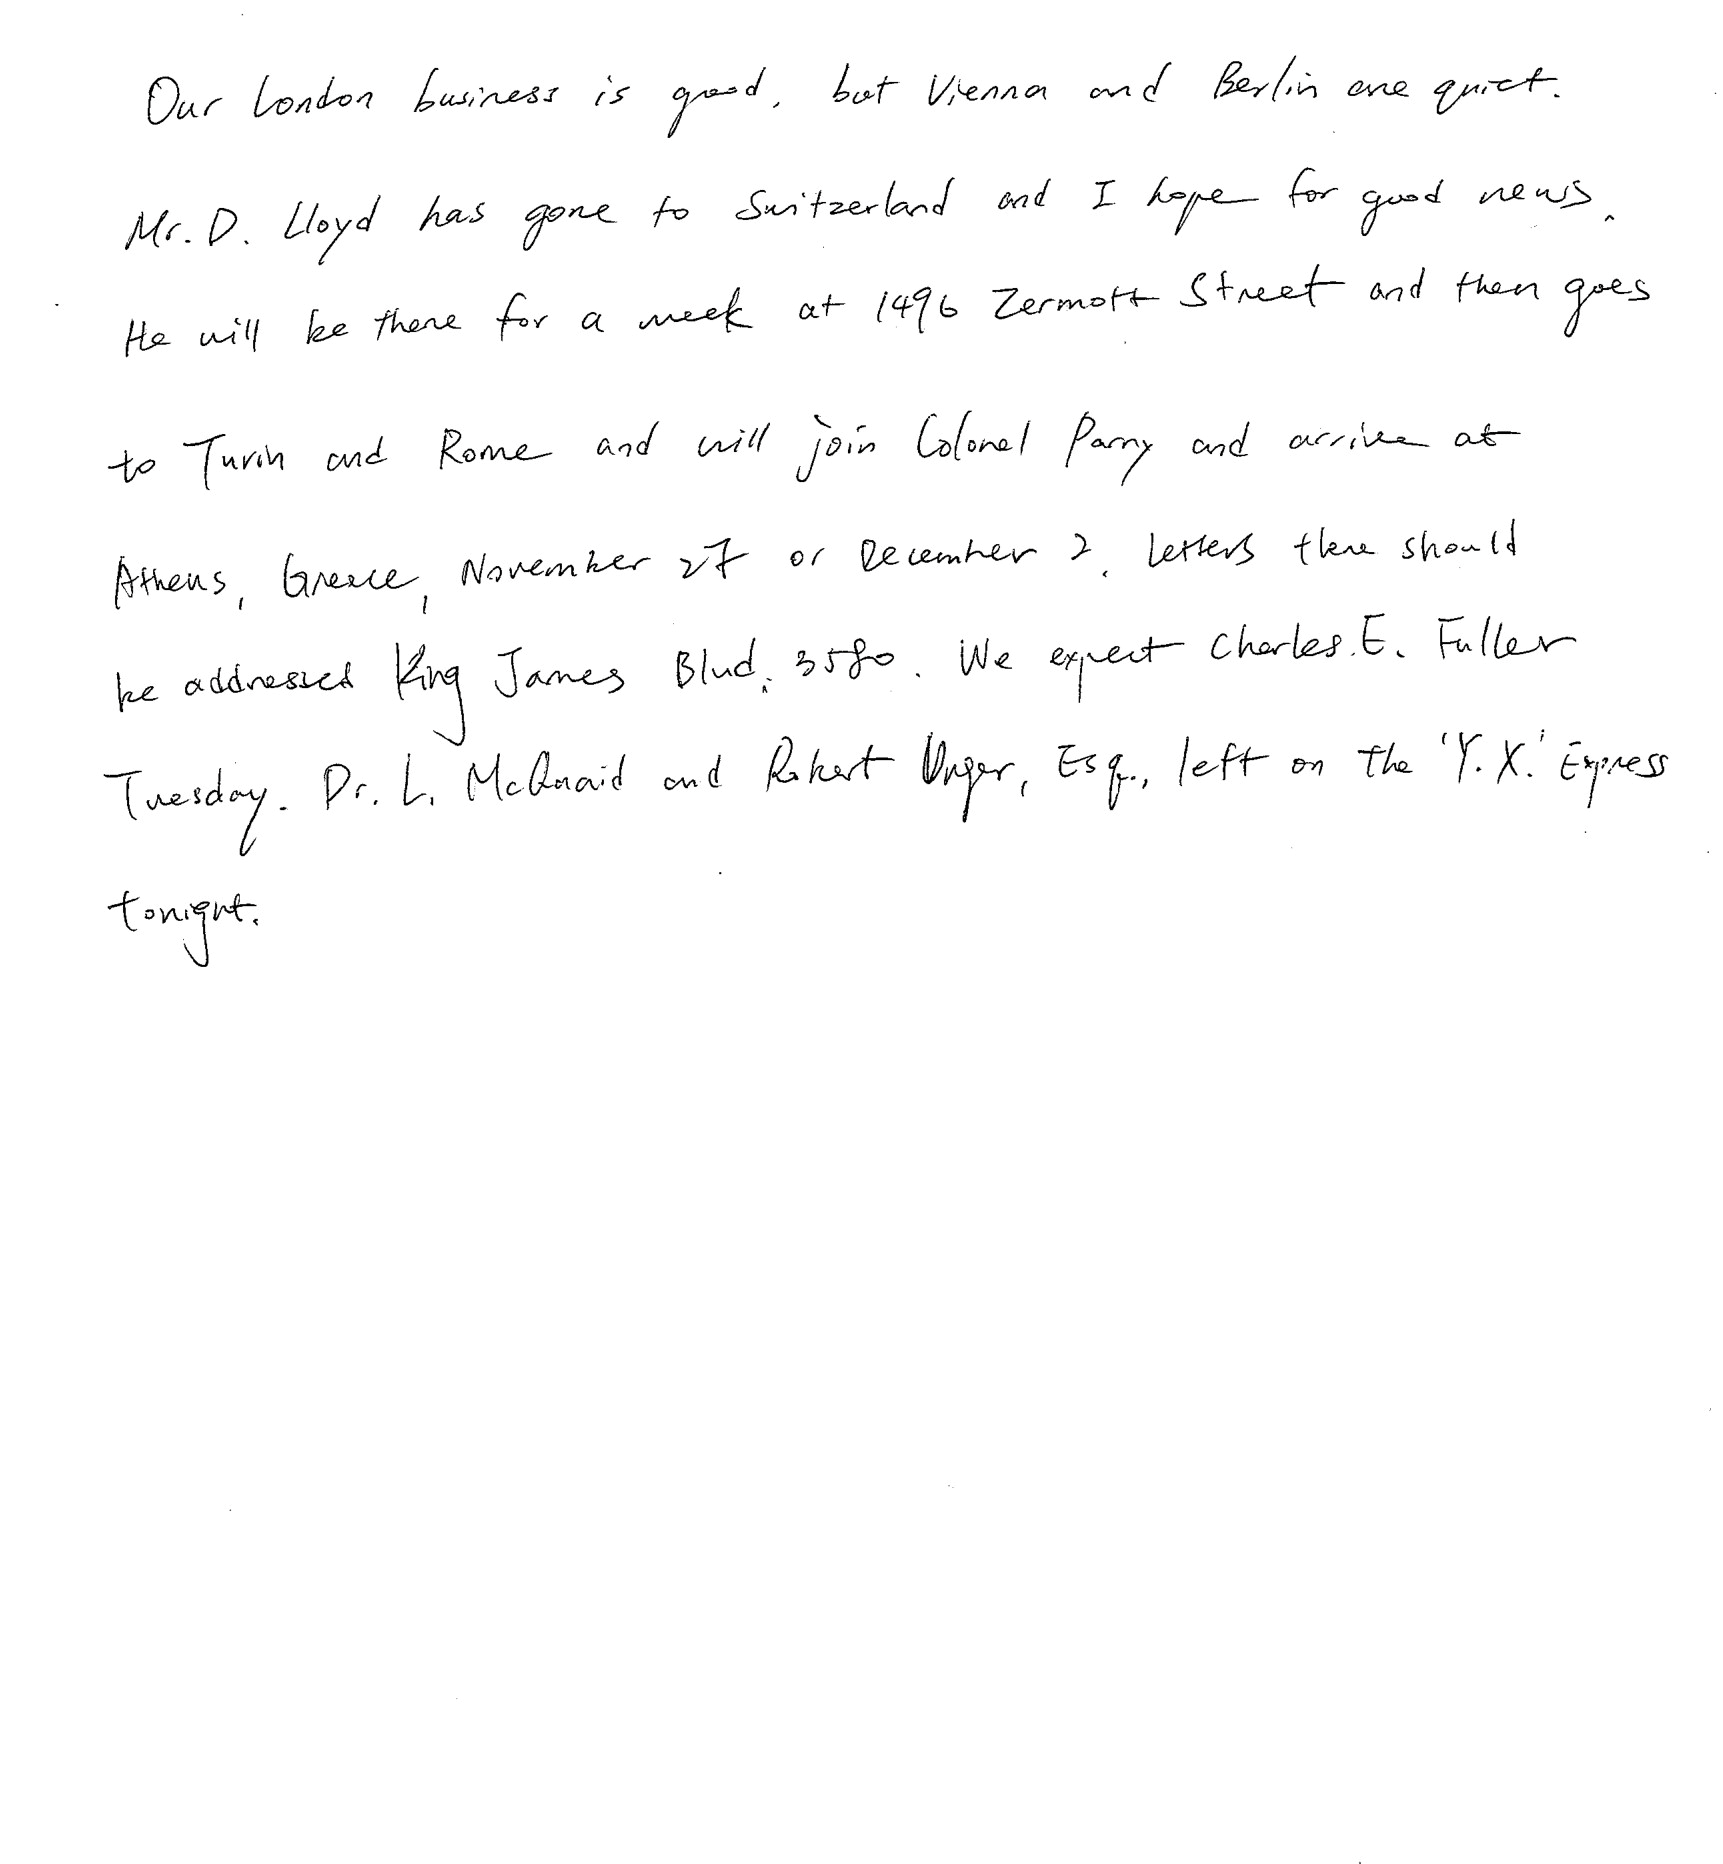 Our London business is good, but Vienna and Berlin are quiet.
Mr. D. Lloyd has gone to Switzerland and I hope for good news.
He will be there for a week at 1496 Zermott Street and then goes
to Turin and Rome and will join Colonel Parry and arrive at
Athens, Greece, November 27 or December 2. Letters there should
be addressed King James Blvd. 3580. We expect Charles E. Fuller
Tuesday. Dr. L. McQuaid and Robert Unger, Esq., left on the 'Y.X.' Express
tonight.